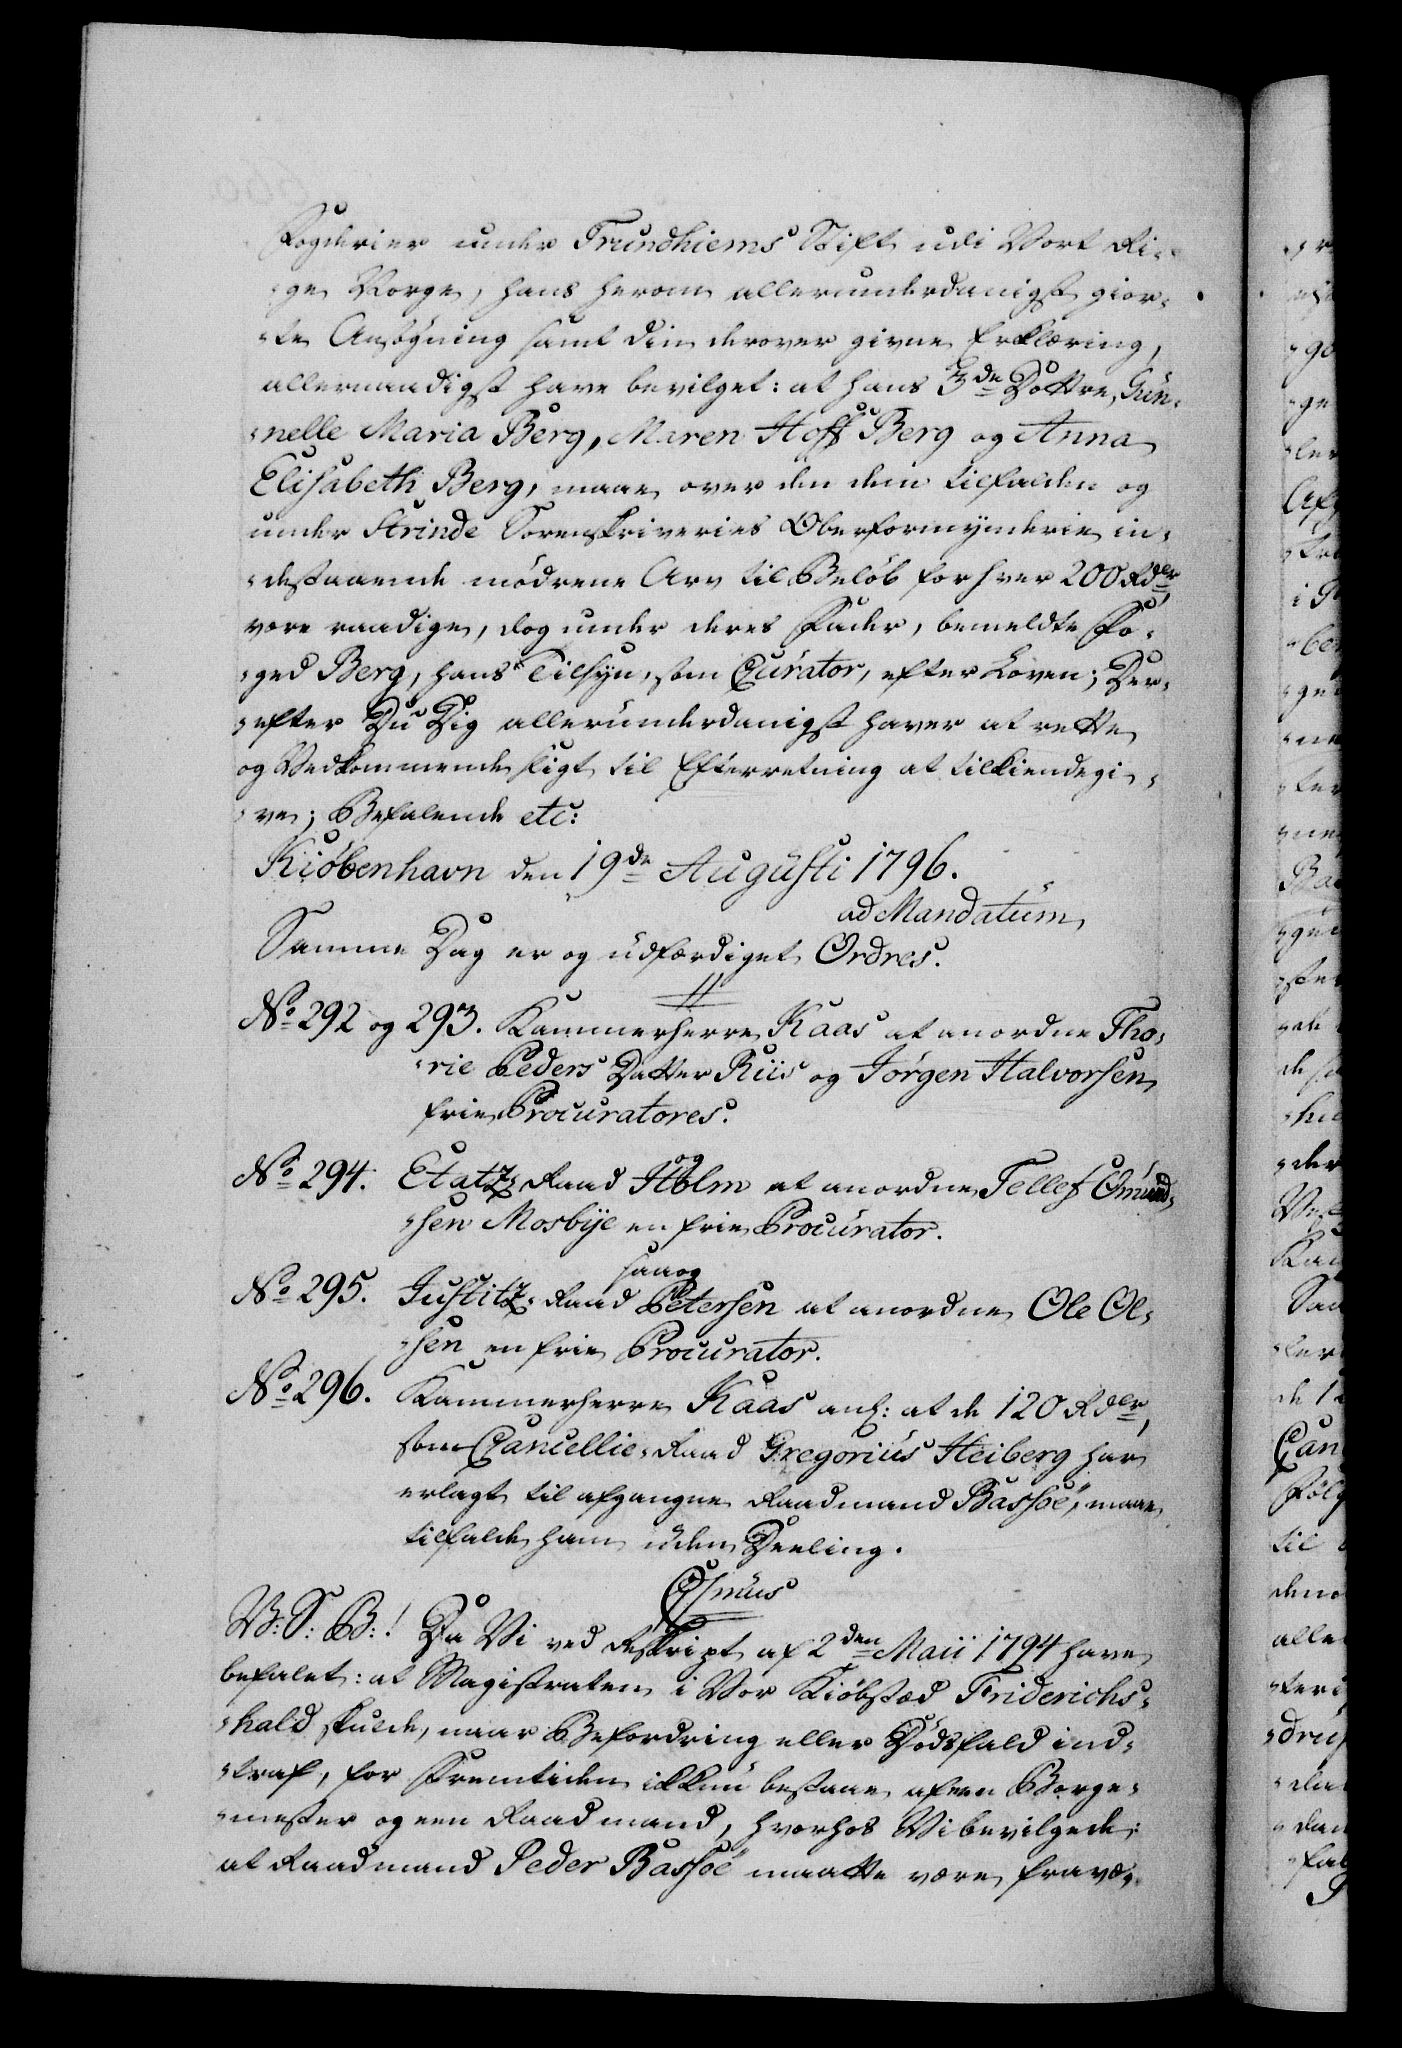 Fogderier under Trundhiems Stift udi Vort Ri-
-ge Norge, hans herom allerunderdanigst gior-
-te Ansøgning samt din derover givne Erklæring,
allernaadigst have bevilget: at hans 3de Døttre, Gun-
-nelle Maria Berg, Maren Hoff Berg og Anna
Elisabeth Berg, maae over den dem tilfalden og
under Strinde Sorenskriveries Oberformynderie in-
-destaaende mødrene Arv til Beløb for hver 200 Rdlr
være raadige, dog under deres Fader, bemeldte Fo-
-ged Berg, hans Tilsyn, som Curator, efter Loven; Der-
-efter Du Dig allerunderdanigst haver at rette
og Vedkommende sligt til Efterretning at tilkiendegi-
-ve; Befalende etc:
Kiøbenhavn den 19de Augusti 1796.
ad Mandatum
Samme Dag er og udfærdiget Ordres.
No 292 og 293. Kammerherre Kaas at anordne Tho-
-rie Peders Datter Riis og Jørgen Halvorsen
frie Procuratores.
No 294. Etatz-Raad og Holm at anordne Tellef Omund-
-sen Mosbye en frie Procurator.
No 295. Justitz-Raad saaog Petersen at anordne Ole Ol-
-sen en frie Procurator.
No 296. Kammerherre Kaas anl: at de 120 Rdlr,
som Cancellie-Raad Gregorius Heiberg har
erlagt til afgangne Raadmand Bassøe, maae
tilfalde ham uden Deeling.
Osmus
V: S: B:! Da Vi ved Reskript af 2den Maii 1794 have
befalet: at Magistraten i Vor Kiøbstæd Friderichs-
-hald skulde, naar Befordring eller Dødsfald ind-
-traf, for Fremtiden ikkun bestaae af een Borge-
-mester og een Raadmand, hvorhos Vi bevilgede:
at Raadmand Peder Bassøe maatte være fravæ-